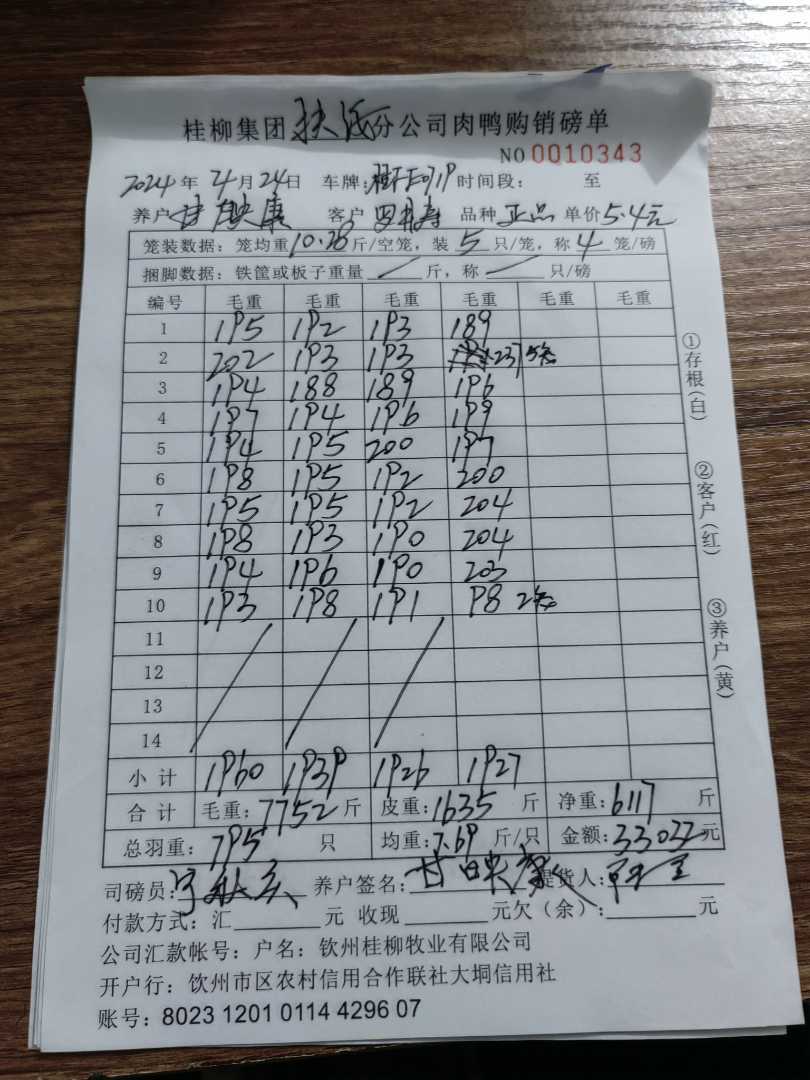 桂柳集团 分公司肉鸭购销磅单
NO 0010343
2024年 4月24日 车牌: 时间段: 至
养户 甘映康 客户 品种 正品 单价 5.4元
笼装数据：笼均重10.28斤/空笼，装5只/笼，称4笼/磅
捆脚数据：铁筐或板子重量 / 斤，称 / 只/磅
编号 毛重 毛重 毛重 毛重 毛重 毛重
1 195 192 193 189
2 202 193 193 237 5笼
3 194 188 189 196
4 197 194 196 199
5 194 195 200 197
6 198 195 192 200
7 195 195 192 204
8 198 193 190 204
9 194 196 190 203
10 193 198 191 98 2笼
11
12
13
14
小计 1960 1939 1926 1927
合计 毛重:7752斤 皮重:1635斤 净重:6117斤
总羽重:795只 均重:7.69斤/只 金额:33032元
司磅员: 养户签名:甘映康 提货人:
付款方式：汇 元 收现 元欠（余）: 元
公司汇款帐号：户名：钦州桂柳牧业有限公司
开户行：钦州市区农村信用合作联社大垌信用社
账号：8023 1201 0114 4296 07
①存根（白）
②客户（红）
③养户（黄）